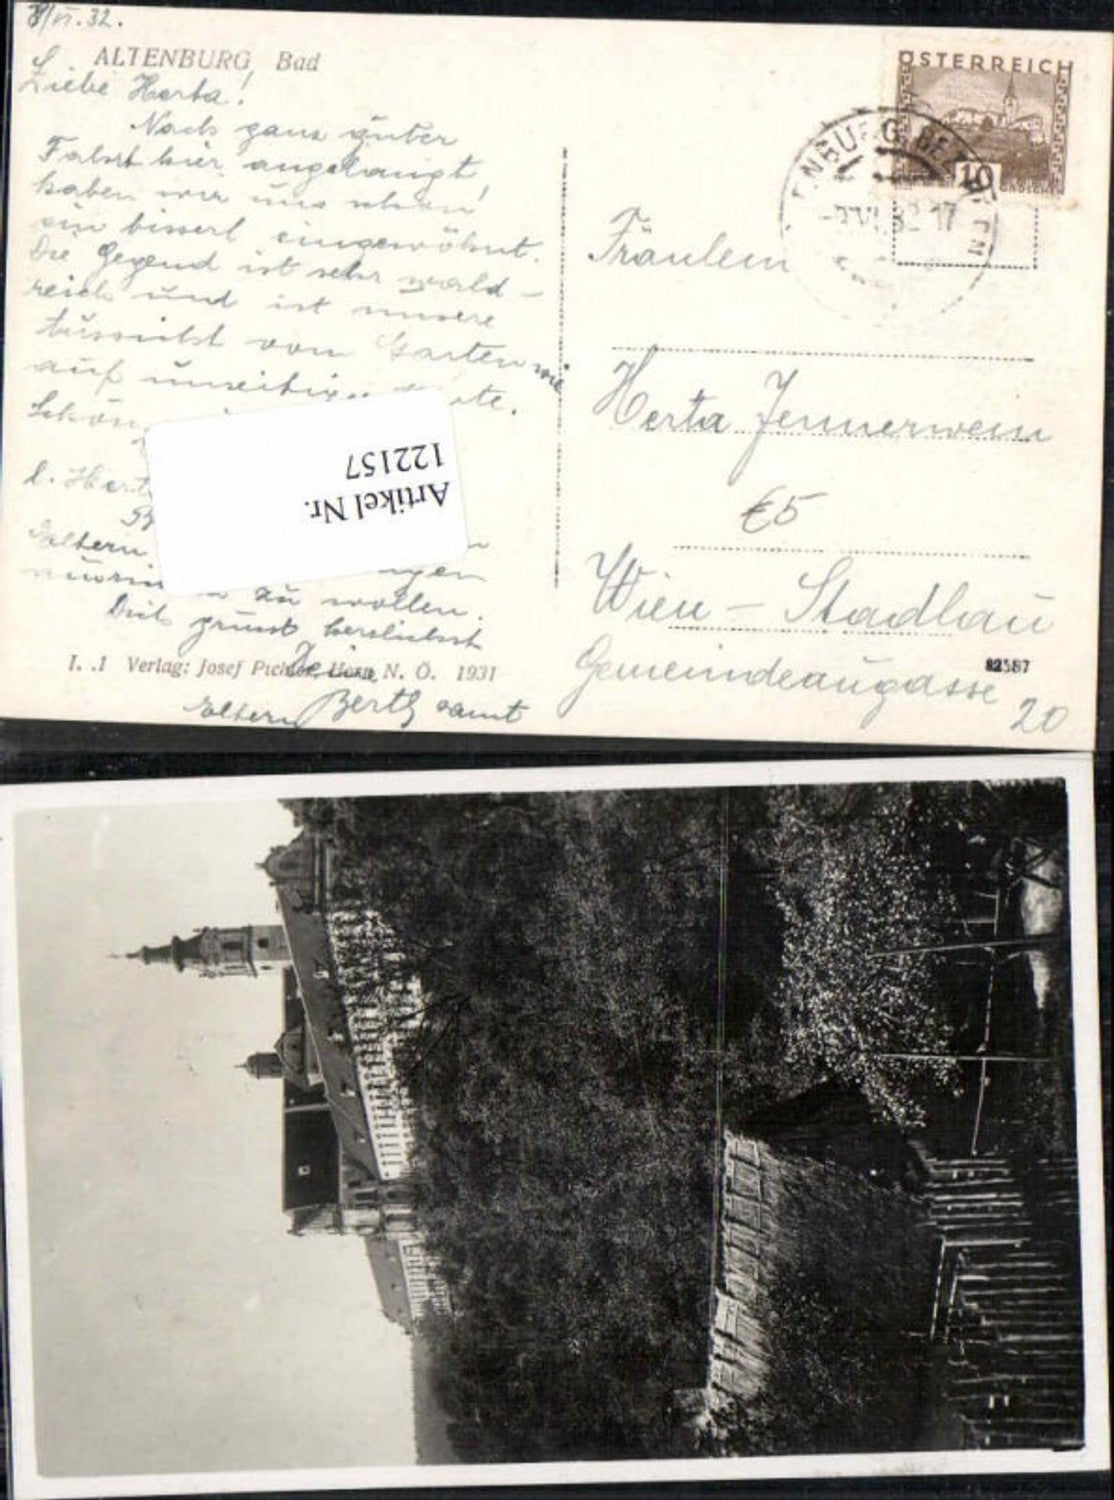 /VI.32.
ALTENBURG Bad
Liebe Herta!
Nach ganz guter
Fahrt hier angelangt,
haben wir uns schon
ein bisserl eingewöhnt.
Die Gegend ist sehr wald-
reich und ist unsere
Aussicht vom Garten wie
auf umseitiger Karte.
Schön
l. Hert
Eltern
zu wollen.
Dich grüsst herzlichst
Deine
I. .I Verlag: Josef Pichler Horn N. Ö. 1931
Berth samt
Eltern
ÖSTERREICH
10
GROSCHEN
ENBURG, BEZ. HORN
VI.32 17
Fräulein
Herta Jennerwein
€5
Wien – Stadlau
Gemeindeaugasse
20
82587
Artikel Nr.
122157